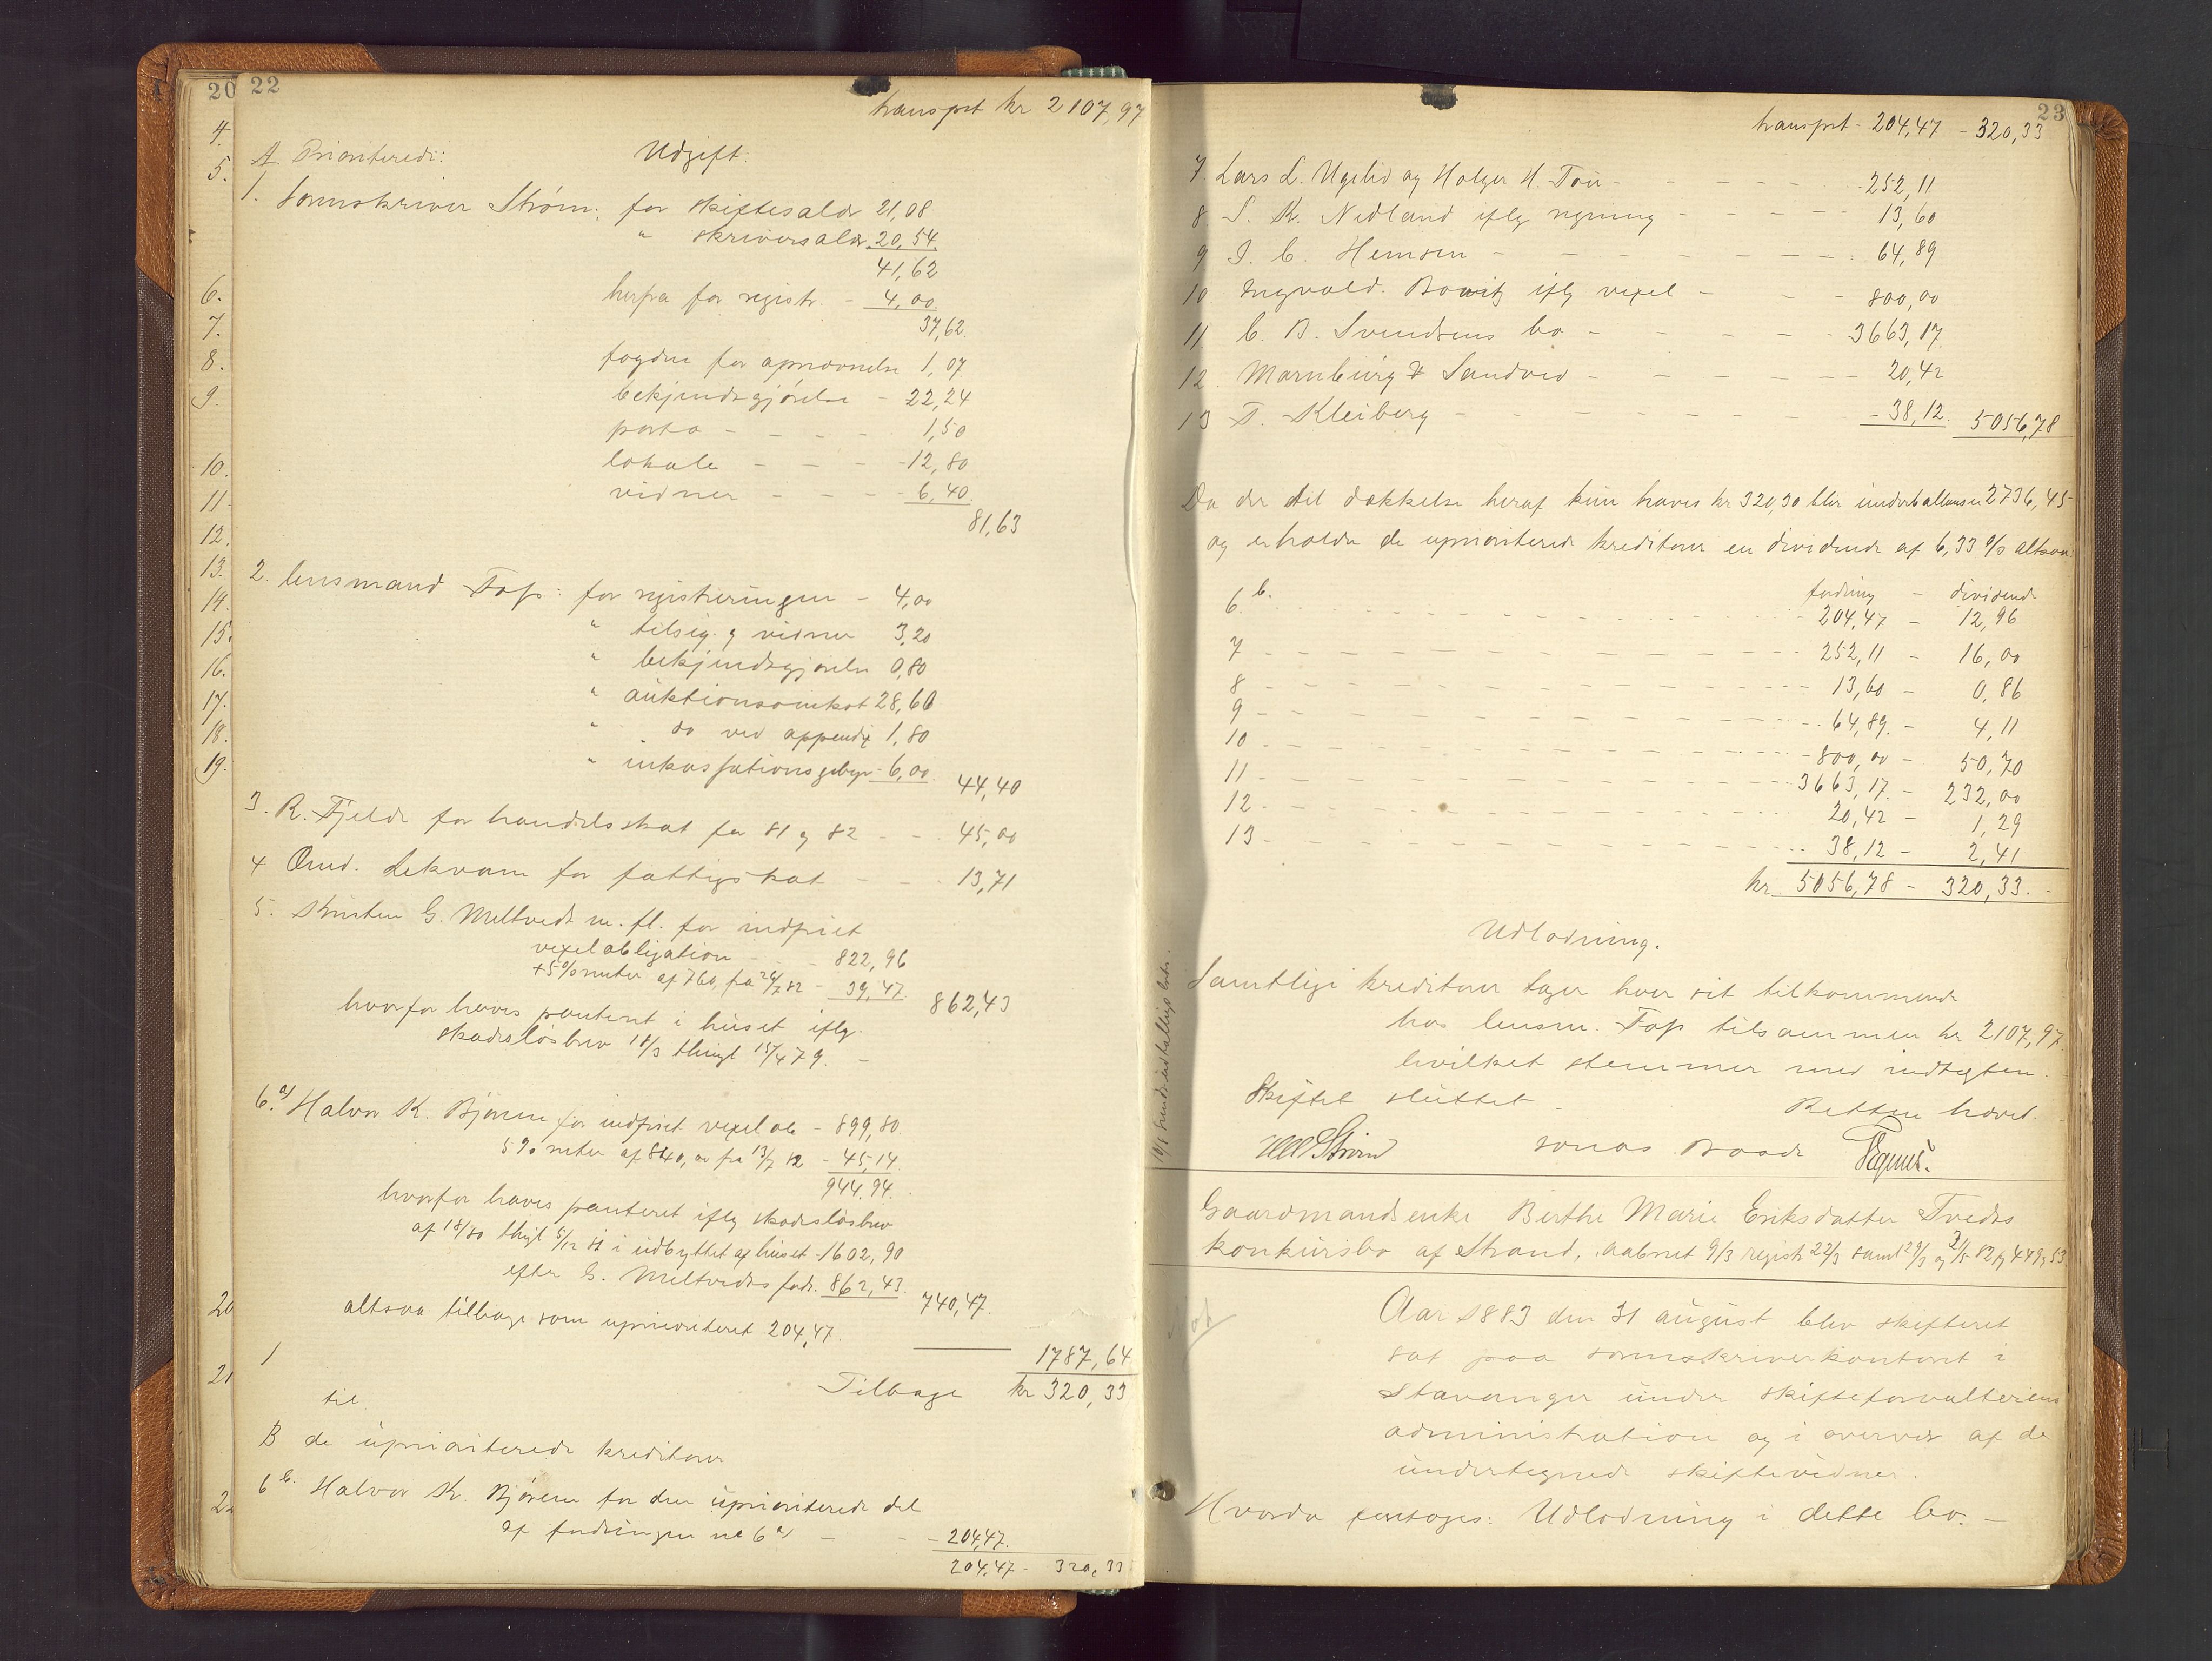 20 22
transprt kr 2107,97
4.
5.
6.
7.
8.
9.
10.
11.
12.
13.
14.
15.
16.
17.
18.
19.
20
21
A. Prioriterede: Udgift:
1. Sorenskriver Strøm: for skiftesaldr 21,08
" skriversaldr. 20,54.
41,62
herfra for registr. - 4,00.
37,62.
fogden for opnævnelse 1,07
bekjendtgjørelse - 22,24
porto - - - - 1,50
lokale - - - - 12,80
vidner - - - - 6,40.
81,63
2. lensmand Fos: for registreringen - 4,00
" tilsig. g vidner 3,20
" bekjendtgjørelse 0,80
" auktionsomkost 28,60
" do ved appendix 1,80
" inkassationsgebyr - 6,00. 44,40
3. R. Fjelde for handelsskat for 81 g 82 - - 45,00
4 Omd. Lekvam for fattigskat - - 13,71
5. Kristen G. Meltvedt m. fl. for indfriet
vexelobligation - - 822,96
+5% renter af 760, fra 24/7 82 - 39,47 862,43
hvorfor haves panteret i huset iflg.
skadesløsbrev 18/3 thingl 15/4 79. -
6. a) Halvor K. Bjørem for indfriet vexelob - 899,80
5% renter af 840,00 fra 13/7 82 - 45,14.
944,94.
hvorfor haves panteret iflg skadesløsbrev
af 18/80 thgl 5/12 81 i udbyttet af huset - 1602,90
efter G. Meltvedts fodr. 862,43. 740,47.
altsaa tilbage som uprioriteret 204,47.
1787,64
Tilbage kr 320,33
til
B de uprioriterede kreditorer
6 b. Halvor K. Bjørem for den uprioriterede del
af fordringen no 6 a) - - - 204,47.
204,47 - 320,33
23
transprt - 204,47 - 320,33
7 Lars L. Ugelid og Holger H. Tou - - - - - 252,11
8. S. K. Nedland iflg regning - - - - - 13,60
9 I. C. Hemsen - - - - - - - - 64,89
10. Ingvald. Bowitz iflg vexel - - - 800,00
11. C. B. Svendsens bo - - - - - - 3663,17.
12. Marnburg & Sandved - - - - - - 20,42
13 T. Kleiberg - - - - - - - - 38,12. 5056,78
Da der til dækkelse heraf kun haves kr 320,30 blir underballansen 2736,45
og erholder de uprioriterede kreditorer en dividende af 6,33 % altsaa:
fordring - dividende
6. b. 204,47 - 12,96
7 252,11 - 16,00
8 13,60 - 0,86
9 64,89. - 4,11
10 800,00 - 50,70
11 3663,17. - 232,00
12. 20,42 - 1,29
13 38,12 - 2,41
kr. 5056,78 - 320,33. -
Udlodning.
Samtlige kreditorer tager hver sit tilkommende
hos lensm. Fos tilsammen kr 2107,97.
hvilket stemmer med indtægten.
Skiftet sluttet. Retten hævet.
Strøm Jonas Boode
Gaardmandsenke Berthe Marie Eriksdatter Tvedts
konkursbo af Strand, aabnet 9/3 registr 22/3 samt 29/3 og 31/5 82 pg 449 g 53
Aar 1883 den 31 august blev skifteret
sat paa sorenskriverkontoret i
Stavanger under skifteforvalterens
administration og i overvær af de
undertegnede skiftevidner.
Hvorda foretoges: Udlodning i dette bo. -